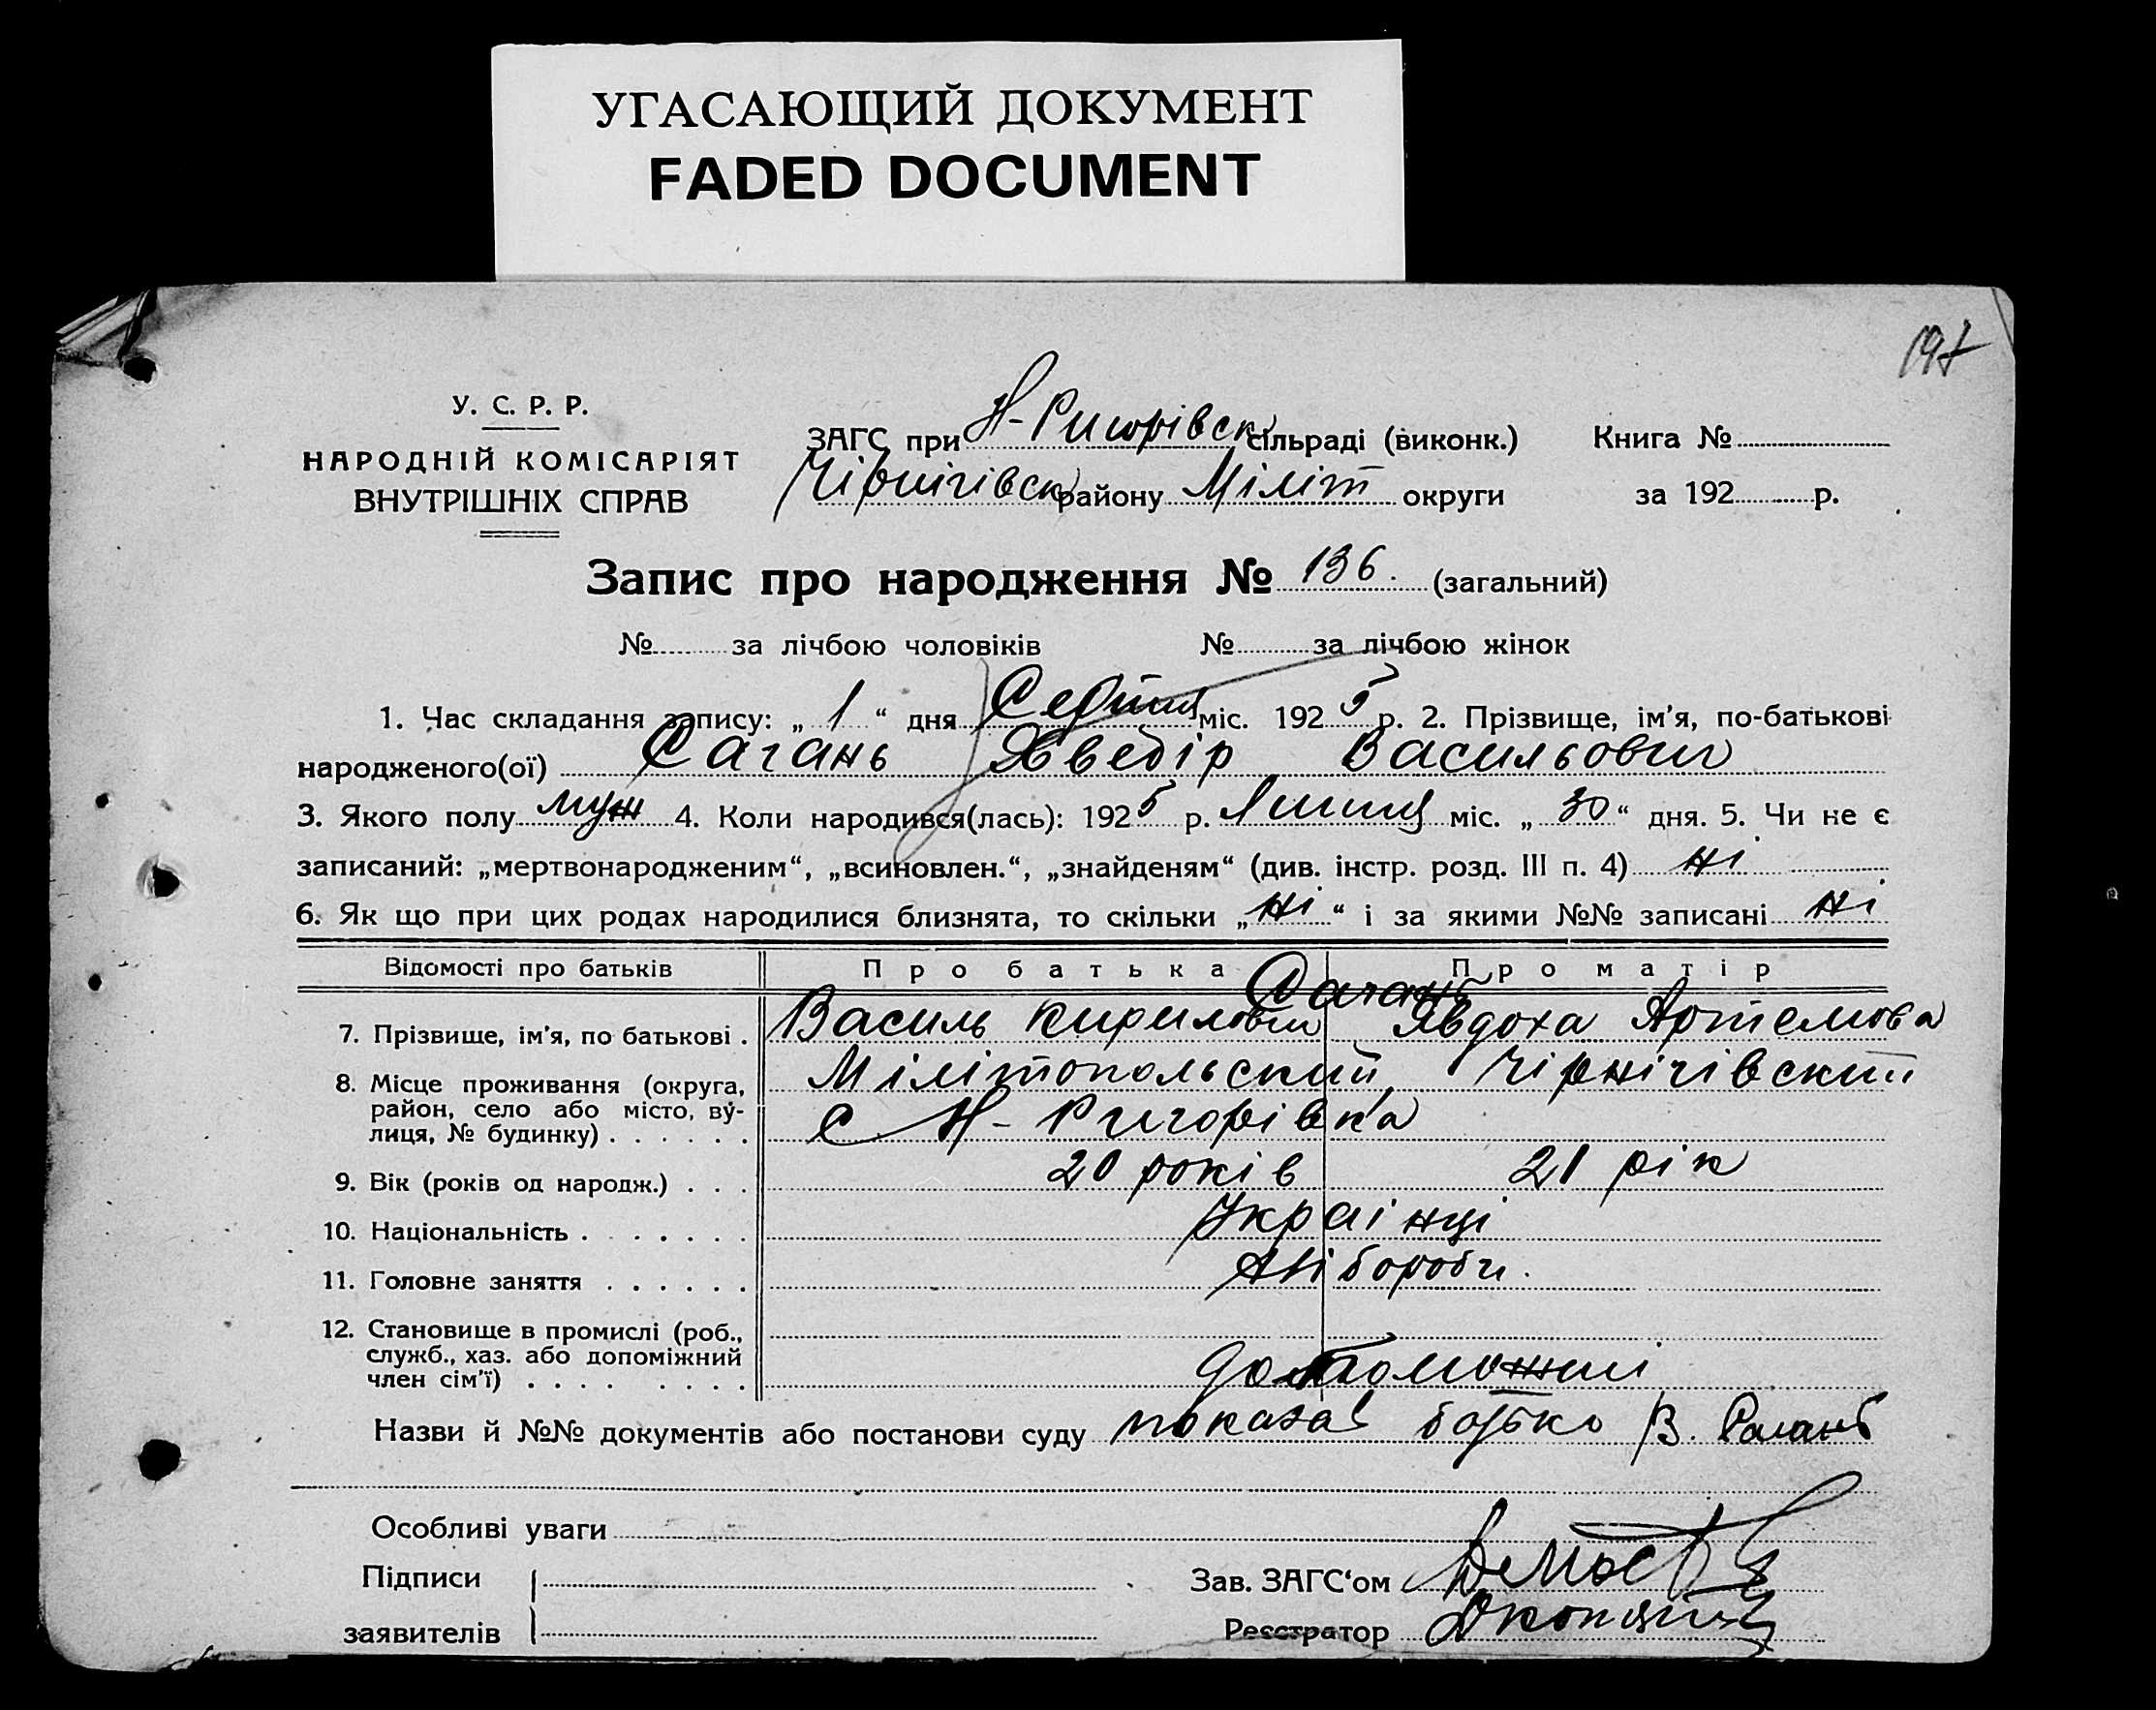 УГАСАЮЩИЙ ДОКУМЕНТ
FADED DOCUMENT
197
У. С. Р. Р.
НАРОДНІЙ КОМІСАРІЯТ
ВНУТРІШНІХ СПРАВ
ЗАГС при Н-Ригорівск сільраді (виконк.) Книга №
Чірнігівск району Міліт округи за 192 р.
Запис про народження № 136. (загальний)
№ за лічбою чоловіків № за лічбою жінок
1. Час складання запису: „ 1 “ дня міс. 192 5 р. 2. Прізвище, ім'я, по-батькові
народженого(ої) Сагань Хведір Васильович
3. Якого полу муж 4. Коли народився(лась): 192 5 р. Липця міс. „ 30 “ дня. 5. Чи не є
записаний: „мертвонародженим“, „всиновлен.“, „знайденям“ (див. інстр. розд. III п. 4) ні
6. Як що при цих родах народилися близнята, то скільки „ ні “ і за якими №№ записані ні
Відомості про батьків Про батька Про матір
Сагань
7. Прізвище, ім'я, по батькові . Василь Кирилович Явдоха Артемова
8. Місце проживання (округа, район, село або місто, ву́-лиця, № будинку) . . . . . . Мілітопольский, Чірнігівский
с Н-Ригорівка
9. Вік (років од народж.) . . . 20 років 21 рік
10. Національність . . . . . . . Українці
11. Головне заняття . . . . . . Хліборобч.
12. Становище в промислі (роб., служб., хаз. або допоміжний член сім'ї) . . . . . . . . допоможні
Назви й №№ документів або постанови суду показав батько В. Сагань
Особливі уваги
Підписи
Зав. ЗАГС‘ом
заявителів
Реєстратор